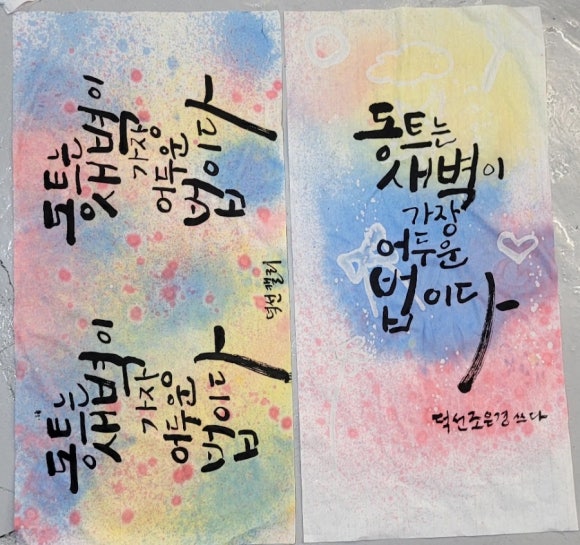 동트는
새벽이
가장
어두운
법이다
동트는
새벽이
가장
어두운
법이다
덕선캘리
동트는
새벽이
가장
어두운
법이다
덕선조은경 쓰다